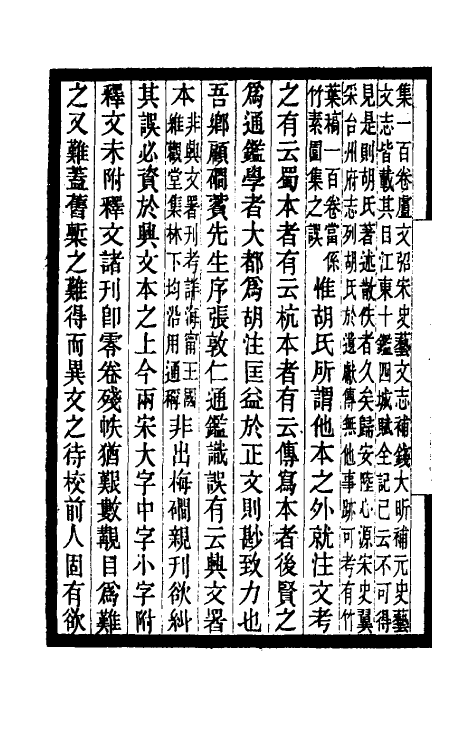 集一百卷盧文弨宋史藝文志補錢大昕補元史藝
文志皆載其目江東十鑑四城賦全記已云不可得
見是則胡氏著述散佚者久矣歸安陸心源宋史翼
采台州府志列胡氏於遺獻傳無他事跡可考有竹
葉稿一百卷當係
竹素園集之誤
惟胡氏所謂他本之外就注文考
之有云蜀本者有云杭本者有云傳寫本者後賢之
爲通鑑學者大都爲胡注匡益於正文則尠致力也
吾鄉顧澗薲先生序張敦仁通鑑識誤有云興文署
本
非興文署刊考詳海甯王國
維觀堂集林下均沿用通稱
非出梅磵親刊欲糾
其誤必資於興文本之上今兩宋大字中字小字附
釋文未附釋文諸刊卽零卷殘帙猶艱數覯目爲難
之又難蓋舊槧之難得而異文之待校前人固有欲